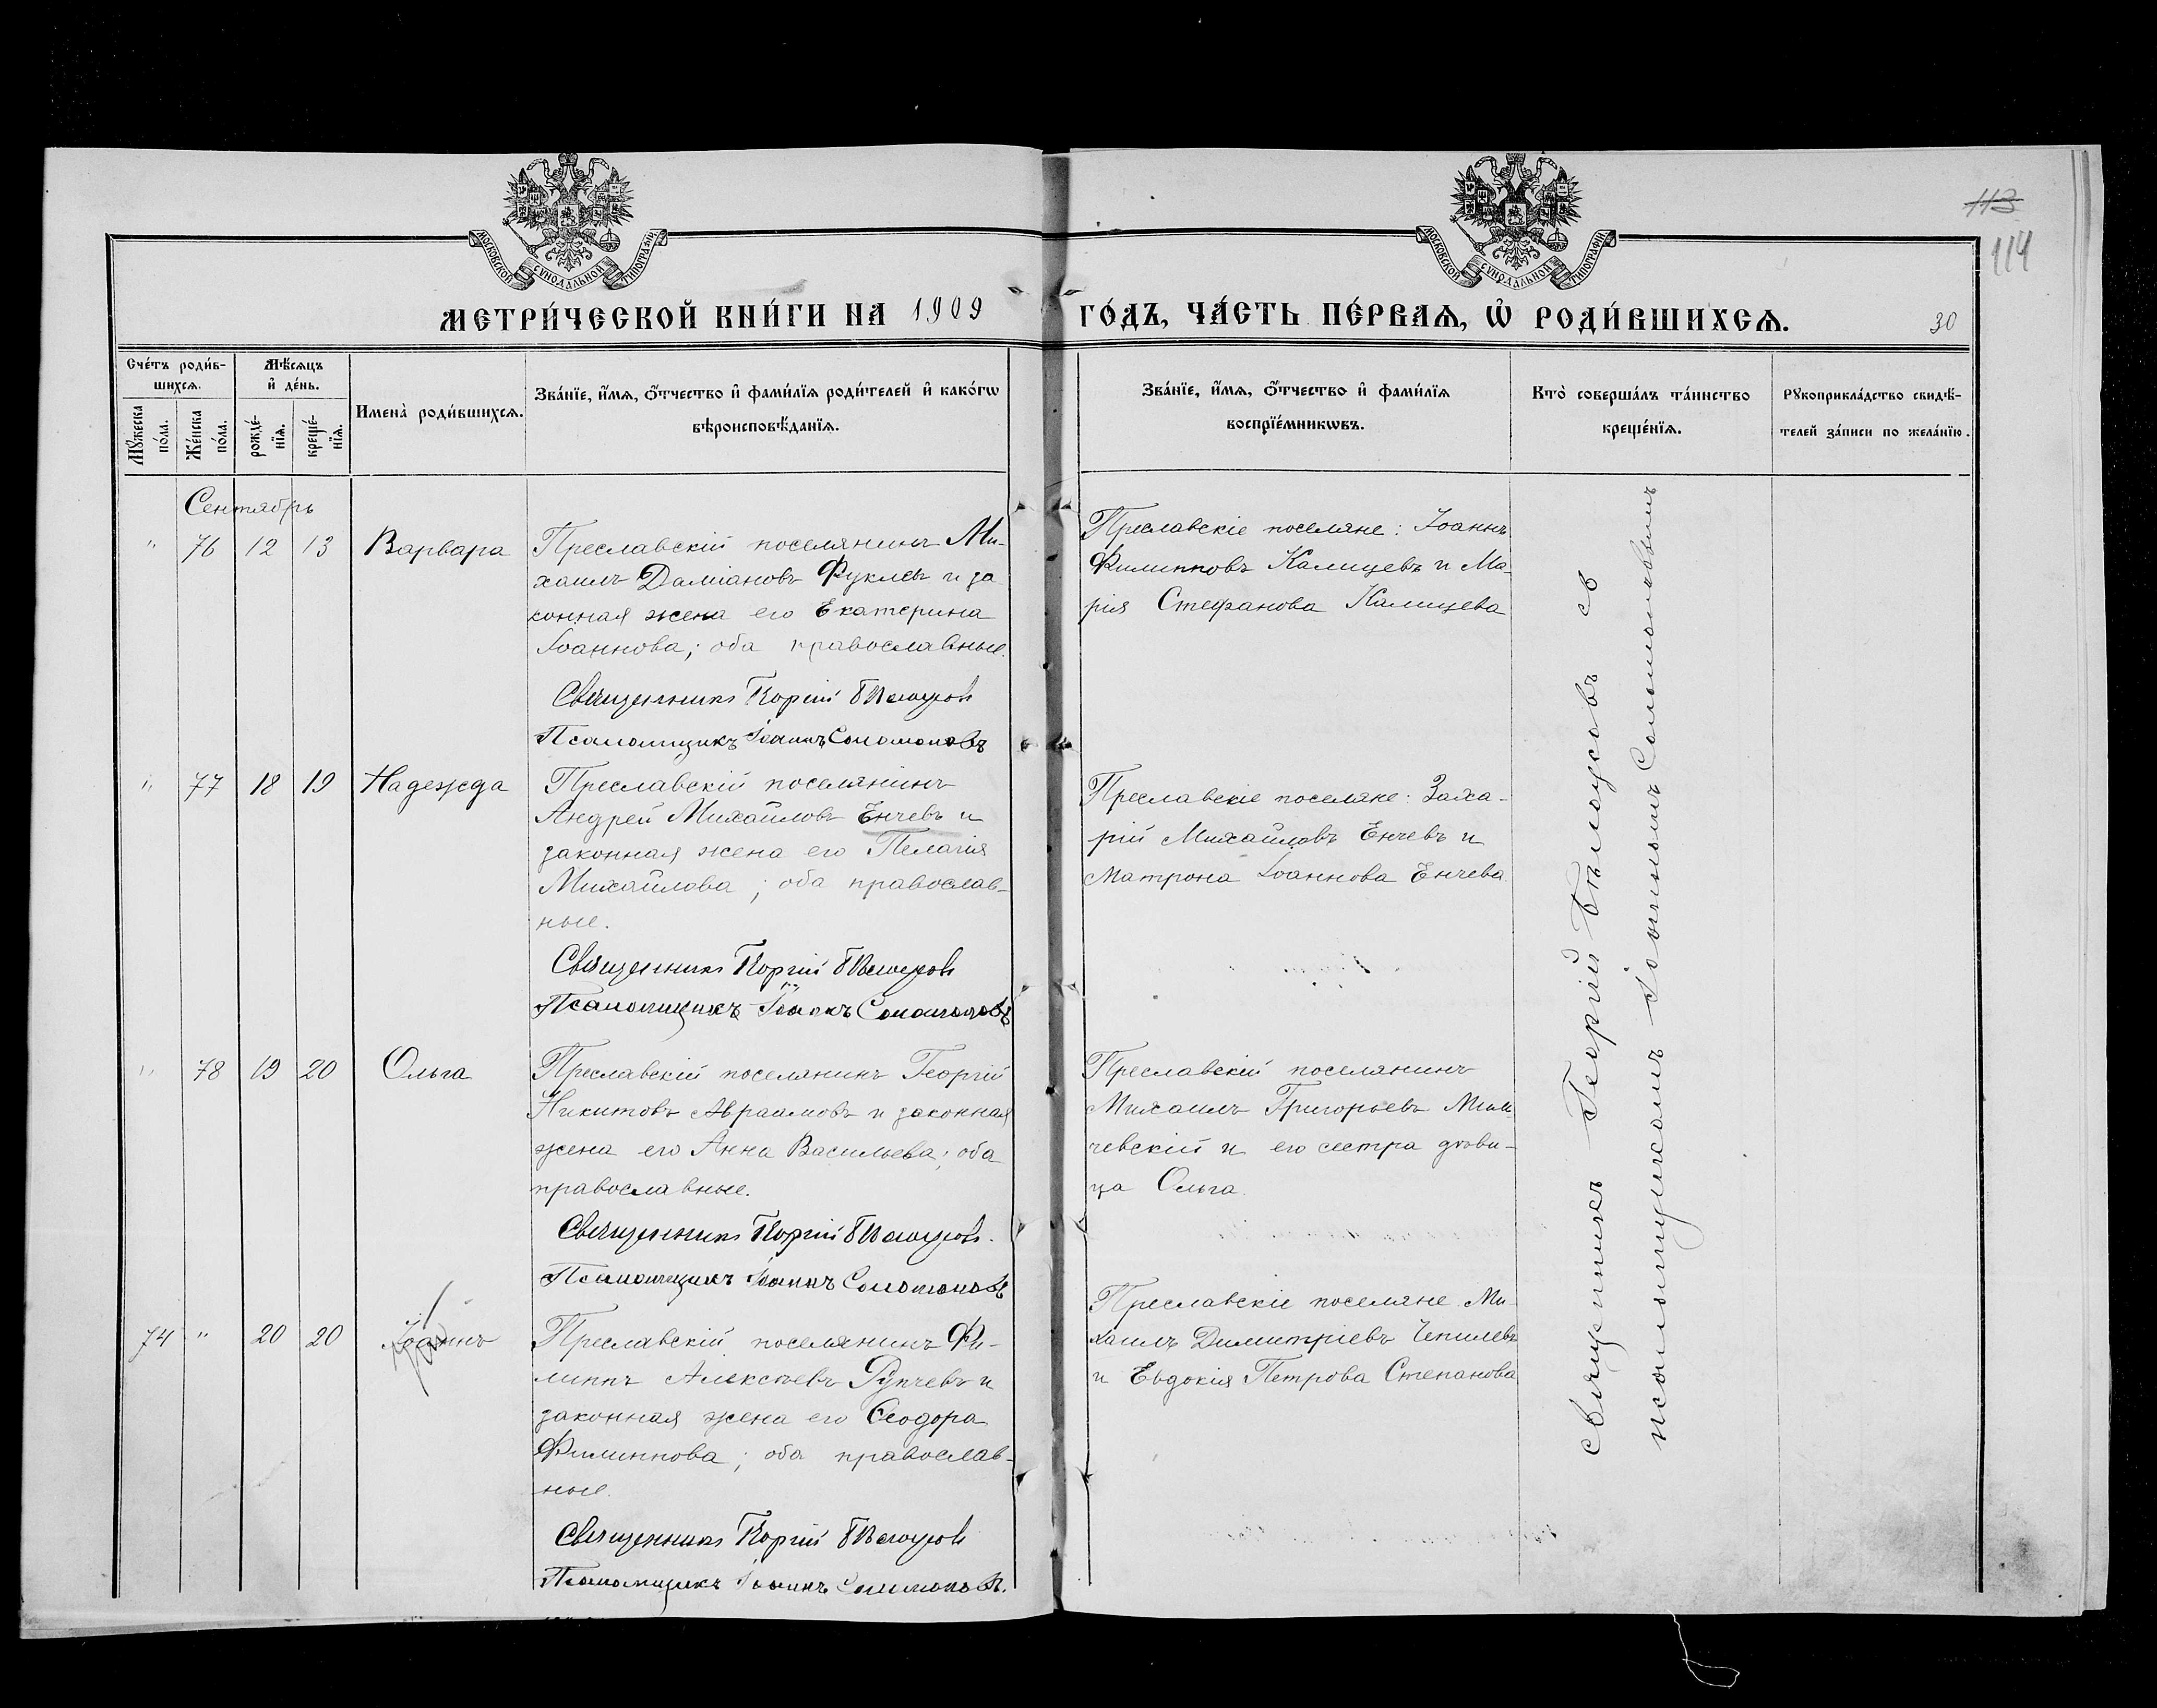 МОСКОВСКОЙ СѴНОДАЛЬНОЙ ТИПОГРАФІИ
МОСКОВСКОЙ СѴНОДАЛЬНОЙ ТИПОГРАФІИ
113
114
МЕТРИ́ЧЕСКОЙ КНИ́ГИ НА 1909
ГО́ДЪ, ЧА́СТЬ ПЕ́РВАѦ, Ѡ҆ РОДИ́ВШИХСѦ.
30
Сче́тъ роди́в-
шихсѧ.
Мꙋ́жеска по́ла.
Же́нска по́ла.
Мѣ́сѧцъ
и҆ де́нь.
рожде́-нїѧ.
креще́-нїѧ.
Имена̀ роди́вшихсѧ.
Зва́нїе, и҆́мѧ, ѻ҆́тчество и҆ фами́лїѧ роди́телей и҆ како́гѡ
вѣроисповѣ́данїѧ.
Зва́нїе, и҆́мѧ, ѻ҆́тчество и҆ фами́лїѧ
воспрїе́мникѡвъ.
Кто̀ соверша́лъ та́инство
креще́нїѧ.
Рꙋкоприкла́дство свидѣ́-
телей за́писи по жела́нїю.
Сентябрь
" 76 12 13 Варвара
Преславскій поселянинъ Ми-
хаилъ Даміановъ Фуклевъ и за
конная жена его Екатерина
Іоаннова; оба православные.
Священникъ Георгій Бѣлоусовъ
Псаломщикъ Іоаннъ Соломоновъ
Преславскіе поселяне: Іоаннъ
Филипповъ Калицевъ и Ма-
рія Стефанова Калицева
" 77 18 19 Надежда
Преславскій поселянинъ
Андрей Михайловъ Енчевъ и
законная жена его Пелагія
Михайлова; оба православ-
ные.
Священникъ Георгій Бѣлоусовъ
Псаломщикъ Іоаннъ Соломоновъ
Преславскіе поселяне: Заха-
рій Михайловъ Енчевъ и
Матрона Іоаннова Енчева
" 78 19 20 Ольга
Преславскій поселянинъ Георгій
Никитовъ Авраамовъ и законная
жена его Анна Васильева; оба
православные.
Священникъ Георгій Бѣлоусовъ.
Псаломщикъ Іоаннъ Соломоновъ
Преславскій поселянинъ
Михаилъ Григорьевъ
чевскій и его сестра дѣви-
ца Ольга.
74 " 20 20 Іоаннъ
Преславскій поселянинъ Фи-
липпъ Алексѣевъ Рупчевъ и
законная жена его Ѳеодора
Филиппова; оба православ-
ные.
Священникъ Георгій Бѣлоусовъ
Псаломщикъ Іоаннъ Соломоновъ.
Преславскіе поселяне Ми-
хаилъ Димитріевъ Чепилевъ
и Евдокія Петрова Степанова
Священникъ Георгій Бѣлоусовъ съ
псаломщикомъ Іоанномъ Соломоновымъ